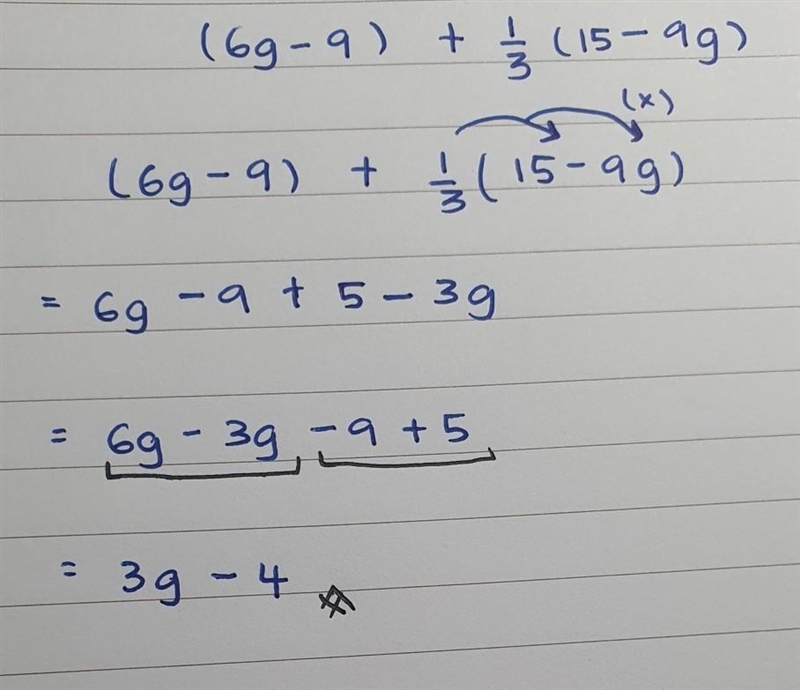 (6g - 9) + 1/3 (15 - 9g)
(x)
(6g - 9) + 1/3 (15 - 9g)
= 6g - 9 + 5 - 3g
= 6g - 3g - 9 + 5
= 3g - 4